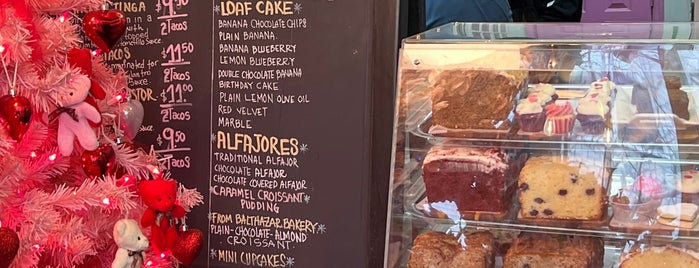 TINGA $9.50
2 TACOS
$11.50
2 TACOS
$11.00
2 TACOS
$9.50
2 TACOS
LOAF CAKE
BANANA CHOCOLATE CHIPS
PLAIN BANANA
BANANA BLUEBERRY
LEMON BLUEBERRY
DOUBLE CHOCOLATE BANANA
BIRTHDAY CAKE
PLAIN LEMON OLIVE OIL
MARBLE
ALFAJORES
TRADITIONAL ALFAJOR
CHOCOLATE ALFAJOR
CHOCOLATE COVERED ALFAJOR
CARAMEL CROISSANT
PUDDING
*FROM BALTHAZAR BAKERY*
PLAIN-CHOCOLATE-ALMOND
CROISSANT
*MINI CUPCAKES*